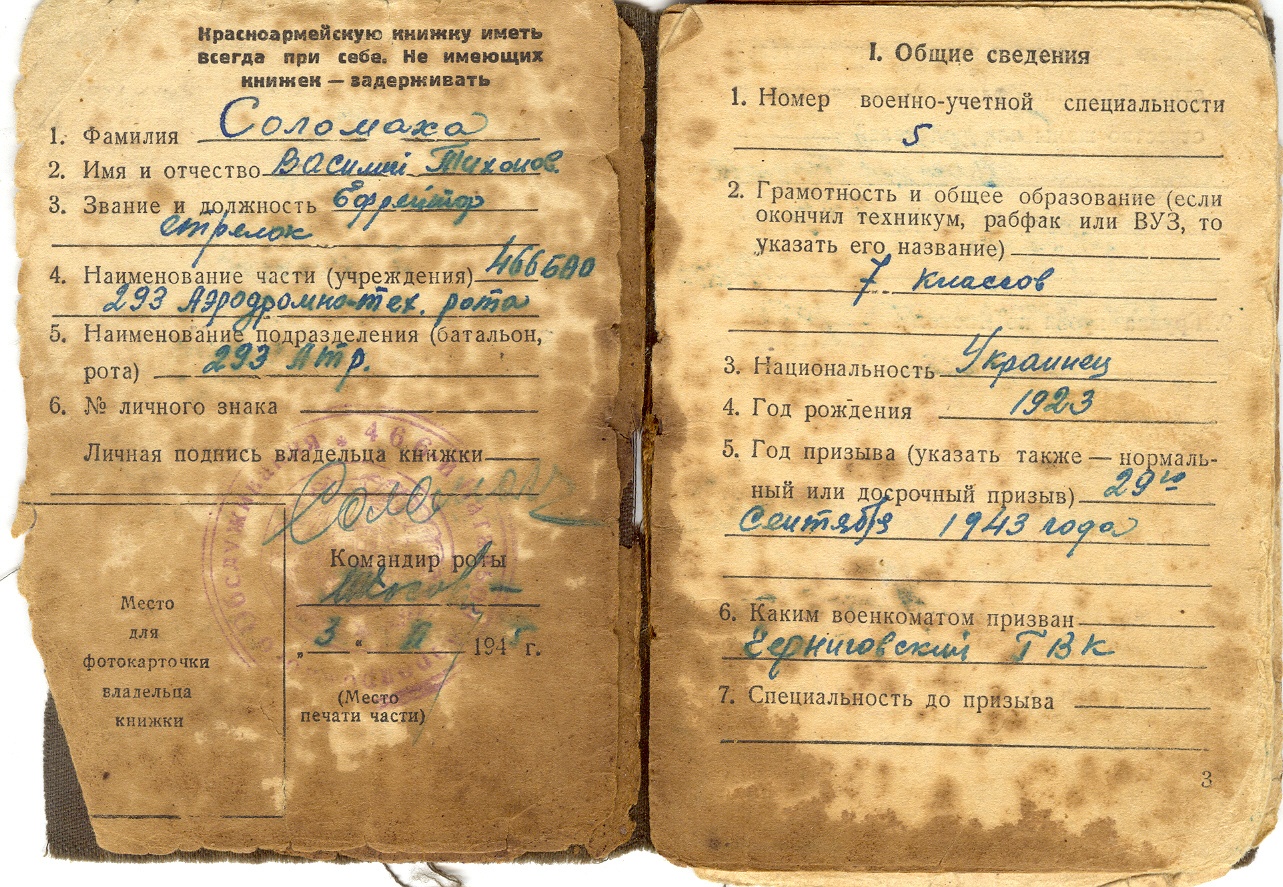 Красноармейскую книжку иметь
всегда при себе. Не имеющих
книжек — задерживать
1. Фамилия Соломаха
2. Имя и отчество Василий Тихонов.
3. Звание и должность Ефрейтор
стрелок
4. Наименование части (учреждения) 466 БАО
293 Аэродромно-тех. рота
5. Наименование подразделения (батальон,
рота) 293 Атр.
6. № личного знака
Личная подпись владельца книжки
Соломаха
Командир роты
„ 3 “ II 1945 г.
(Место
печати части)
Место
для
фотокарточки
владельца
книжки
I. Общие сведения
1. Номер военно-учетной специальности
5
2. Грамотность и общее образование (если
окончил техникум, рабфак или ВУЗ, то
указать его название)
7 классов
3. Национальность Украинец
4. Год рождения 1923
5. Год призыва (указать также — нормаль-
ный или досрочный призыв) 29го
Сентября 1943 года
6. Каким военкоматом призван
Черниговский ГВК
7. Специальность до призыва
3